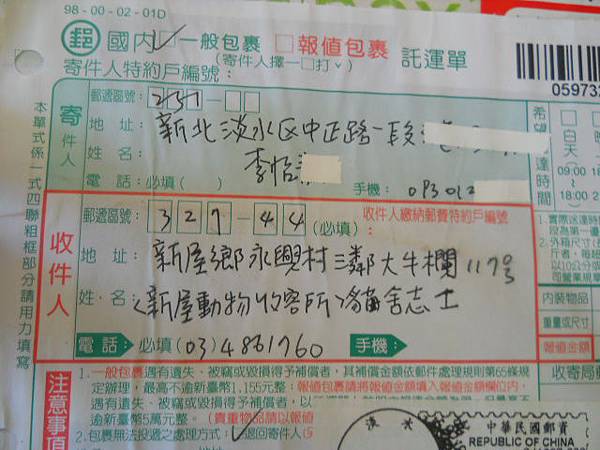 98-00-02-01D
郵 國內 ✓□一般包裹 □報值包裹 託運單
(寄件人擇一□打∨)
寄件人特約戶編號:
059732
本單式係一式四聯粗框部分請用力填寫
寄件人
郵遞區號: 251-□□
地址: 新北淡水区中正路一段
姓名: 李怡
電話:必填( ) 手機: 093012
希望 達時間
白天
09:00
18:00
收件人
郵遞區號: 327-44 (必填) 收件人繳納郵費特約戶編號:
地址: 新屋鄉永興村三鄰大牛欄117号
姓名: <新屋動物收容所 貓舍志工
電話: 必填(03)4861760 手機:
1.實際遞送時
2.外箱尺寸(
內裝物品
重量或尺寸
報值金額
收寄局
注意事項
1.一般包裹遇有遺失、被竊或毀損得予補償者,其補償金額依郵件處理規則第65條規
定辦理,最高不逾新臺幣1,155元整;報值包裹請將報值金額填入報值金額欄位內,
遇有遺失、被竊或毀損得予補償者,
逾新臺幣5萬元整。(貴重物品請以報值
2.包裹無法投遞之處理方式: ✓退回寄件人
淡水
中華民國郵資
REPUBLIC OF CHINA